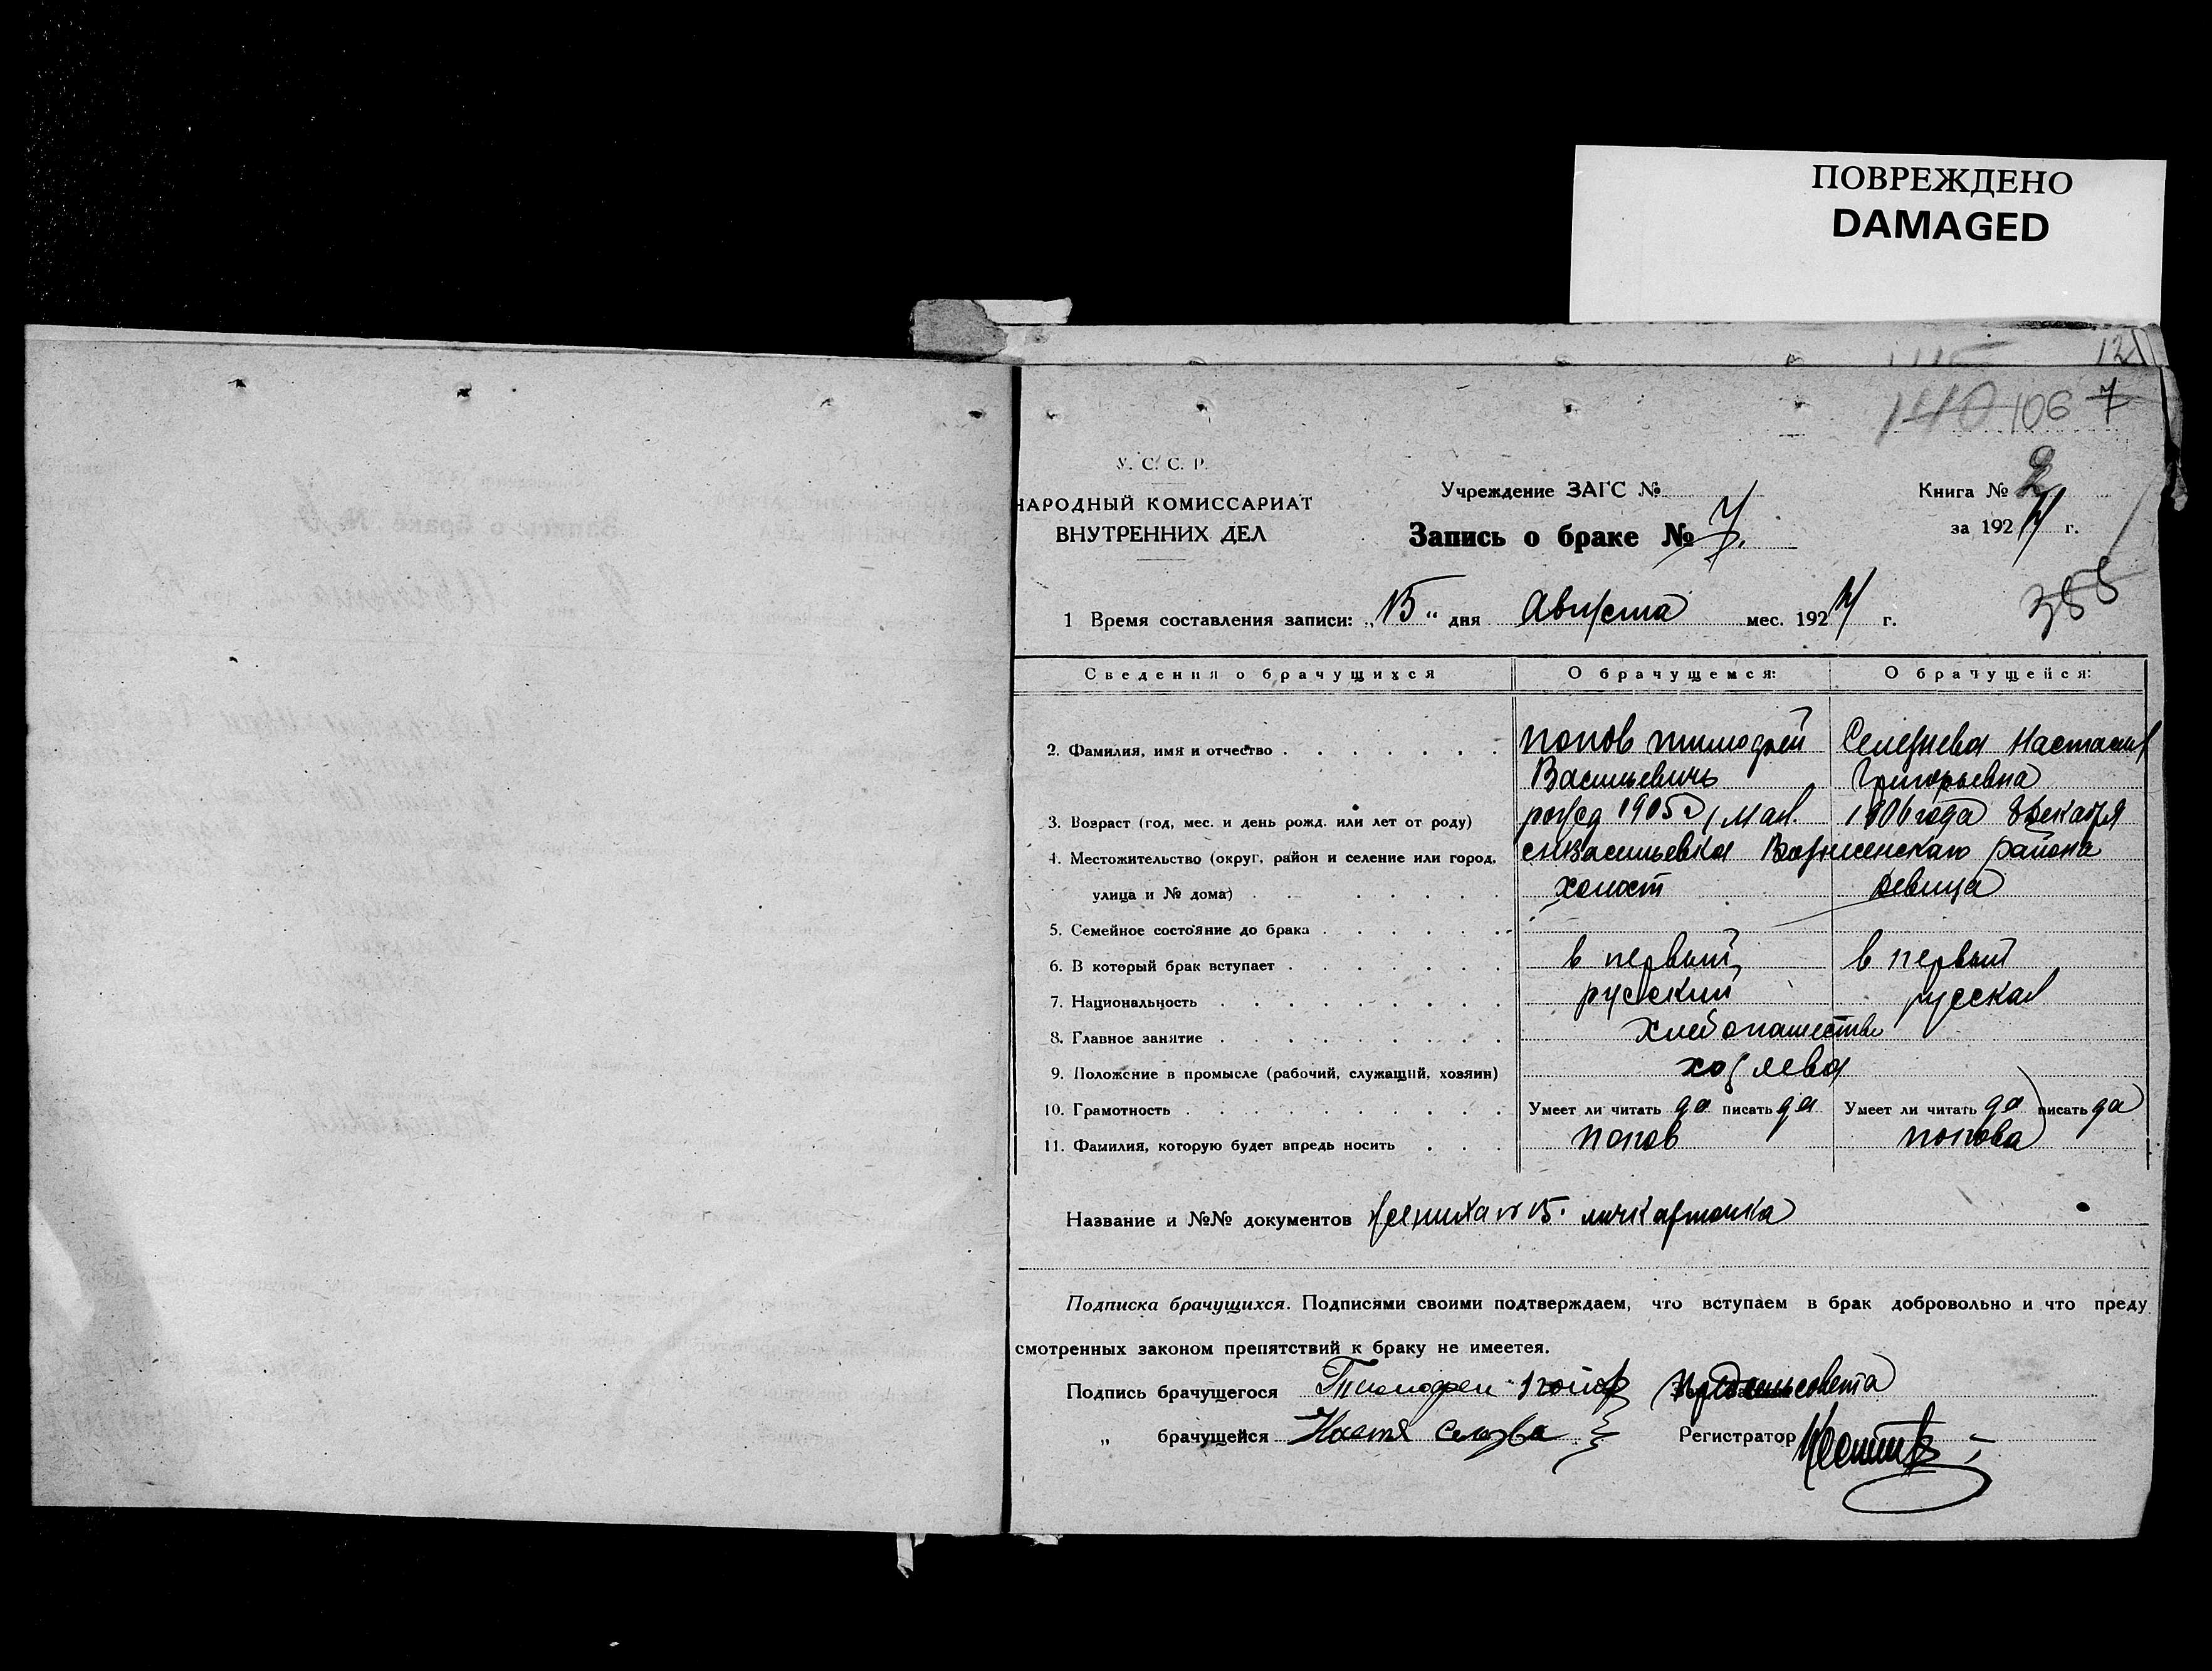 ПОВРЕЖДЕНО
DAMAGED
12
140 106 7
У. С. С. Р.
НАРОДНЫЙ КОМИССАРИАТ
ВНУТРЕННИХ ДЕЛ
Учреждение ЗАГС №
Запись о браке № 7.
Книга № 2
за 192 г.
1 Время составления записи: „15“ дня Августа мес. 192 г.
Сведения о брачущихся О брачущемся: О брачущейся:
2. Фамилия, имя и отчество Попов Тимофей Селезнева Настасия
Васильевичь Григорьевна
3. Возраст (год, мес. и день рожд. или лет от роду) рожд 1905 г 1 мая. 1906 года декабря
4. Местожительство (округ, район и селение или город, Васильевка района
улица и № дома) холост девица
5. Семейное состояние до брака
6. В который брак вступает в первый в первый
7. Национальность русский русская
8. Главное занятие хлебопашество
9. Положение в промысле (рабочий, служащий, хозяин)
10. Грамотность Умеет ли читать да писать да Умеет ли читать да писать да
11. Фамилия, которую будет впредь носить Попов Попова
Название и №№ документов
Подписка брачущихся. Подписями своими подтверждаем, что вступаем в брак добровольно и что преду
смотренных законом препятствий к браку не имеется.
Подпись брачущегося Тимофей Попов
„ брачущейся Настя Регистратор